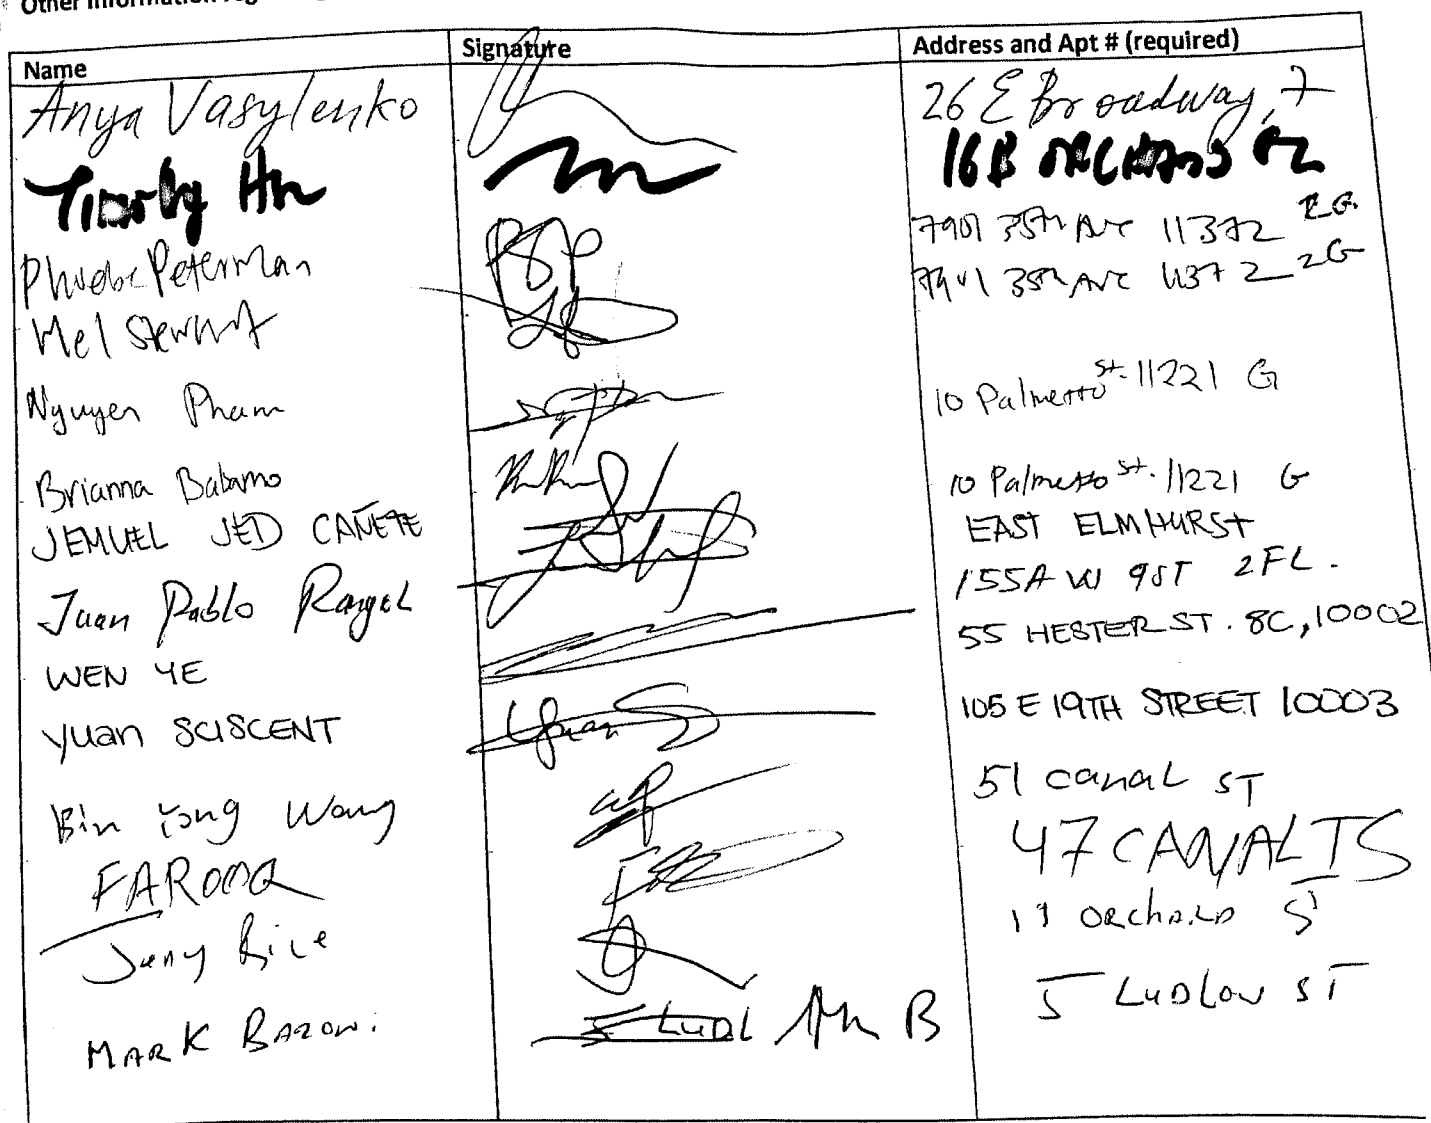 Other
Name Signature Address and Apt # (required)
Anya Vasylenko 26 E Broadway, 7
Timothy 16B ORCHARD
Phoebe Peterman 7901 35th Ave 11372 2G.
Mel Stewart 7901 35th Ave 11372 2G
Nguyen Pham 10 Palmetto St. 11221 G
Brianna Balbamo 10 Palmetto St. 11221 G
JEMUEL JED CAÑETE EAST ELMHURST
Juan Pablo Rangel 155A W 9ST 2FL.
WEN YE 55 HESTER ST. 8C, 10002
Yuan SCISCENT Yuan S 105 E 19TH STREET 10003
Bin Yong Wang 51 canal ST
FAROOQ 47 CANAL TS
Rice 17 ORCHARD S
MARK LUDL B 5 LUDLOW ST